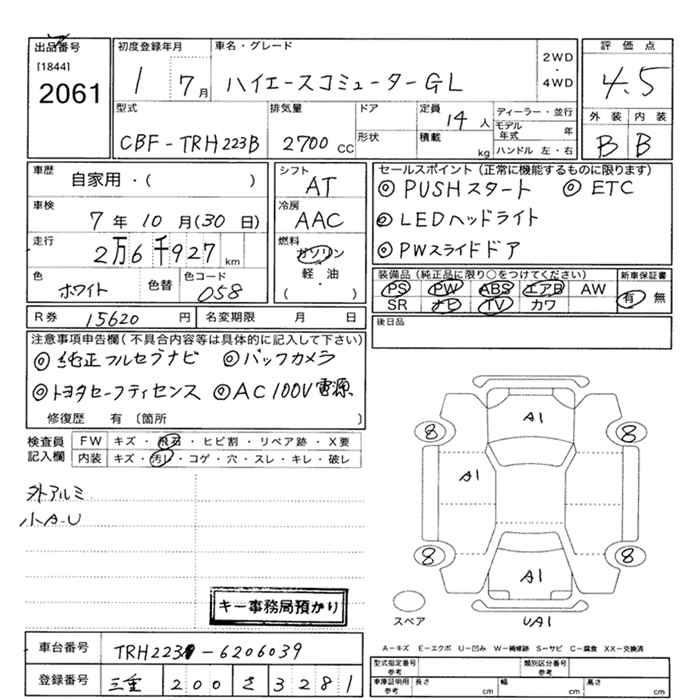 出品番号
[1844]
2061
初度登録年月
1 7月
車名・グレード
ハイエースコミューターGL
2WD
・
4WD
評価点
4.5
型式
CBF-TRH223B
排気量
2700 CC
ドア
形状
定員
14人
積載
kg
ディーラー・並行
モデル年式 年
ハンドル 左・右
外装 内装
B B
車歴
自家用・( )
車検
7年10月(30日)
走行
2万6千927km
色
ホワイト
色替
色コード
058
シフト
AT
冷房
AAC
燃料
ガソリン
軽・油
( )
セールスポイント(正常に機能するものに限ります)
◎PUSHスタート ◎ETC
◎LEDヘッドライト
◎PWスライドドア
装備品(純正品に限り○をつけてください)
PS PW ABS エアB AW
SR ナビ TV カワ
新車保証書
有 無
R券 15620円
名変期限 月 日
後日品
注意事項申告欄(不具合内容等は具体的に記入して下さい)
◎純正フルセグナビ ◎バックカメラ
◎トヨタセーフティセンス ◎AC100V電源
修復歴 有 〔箇所 〕
検査員記入欄
FW キズ・飛石・ヒビ割・リペア跡・X要
内装 キズ・汚レ・コゲ・穴・スレ・キレ・破レ
外アルミ
小A-U
キー事務局預かり
A1
8 8
A1
8 8
A1
スペア
UA1
A-キズ E-エクボ U-凹み W-補修跡 S-サビ C-腐食 XX-交換済
車台番号 TRH223-6206039
登録番号 三重 200 さ 3281
型式指定番号 参考
類別区分番号 参考
車庫証明用 参考
長さ cm
幅 cm
高さ cm